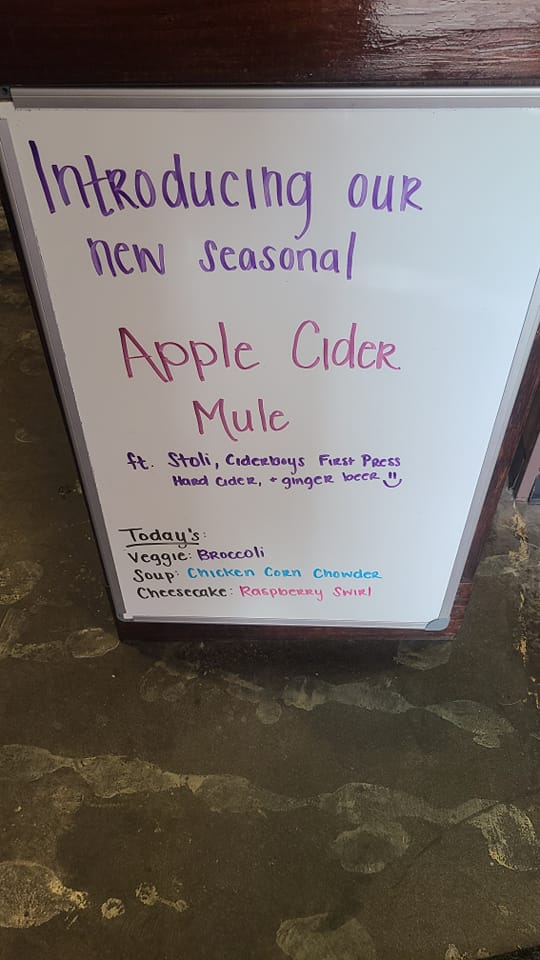 Introducing our
new seasonal
Apple Cider
Mule
ft. Stoli, Ciderboys First Press
Hard Cider, + ginger beer
Today's:
Veggie: Broccoli
Soup: Chicken Corn Chowder
Cheesecake: Raspberry Swirl